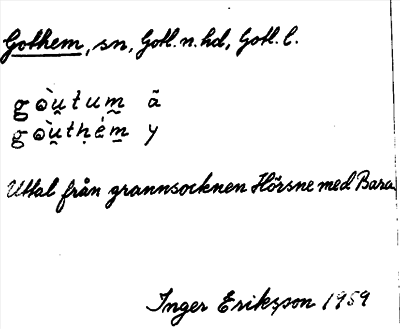 Gothem, sn, Gotl. n. hd, Gotl. l.
gòu̯tum̥ ã
gòu̯tḥém̲ y
Uttal från grannsocknen Hörsne med Bara
Inger Eriksson 1959